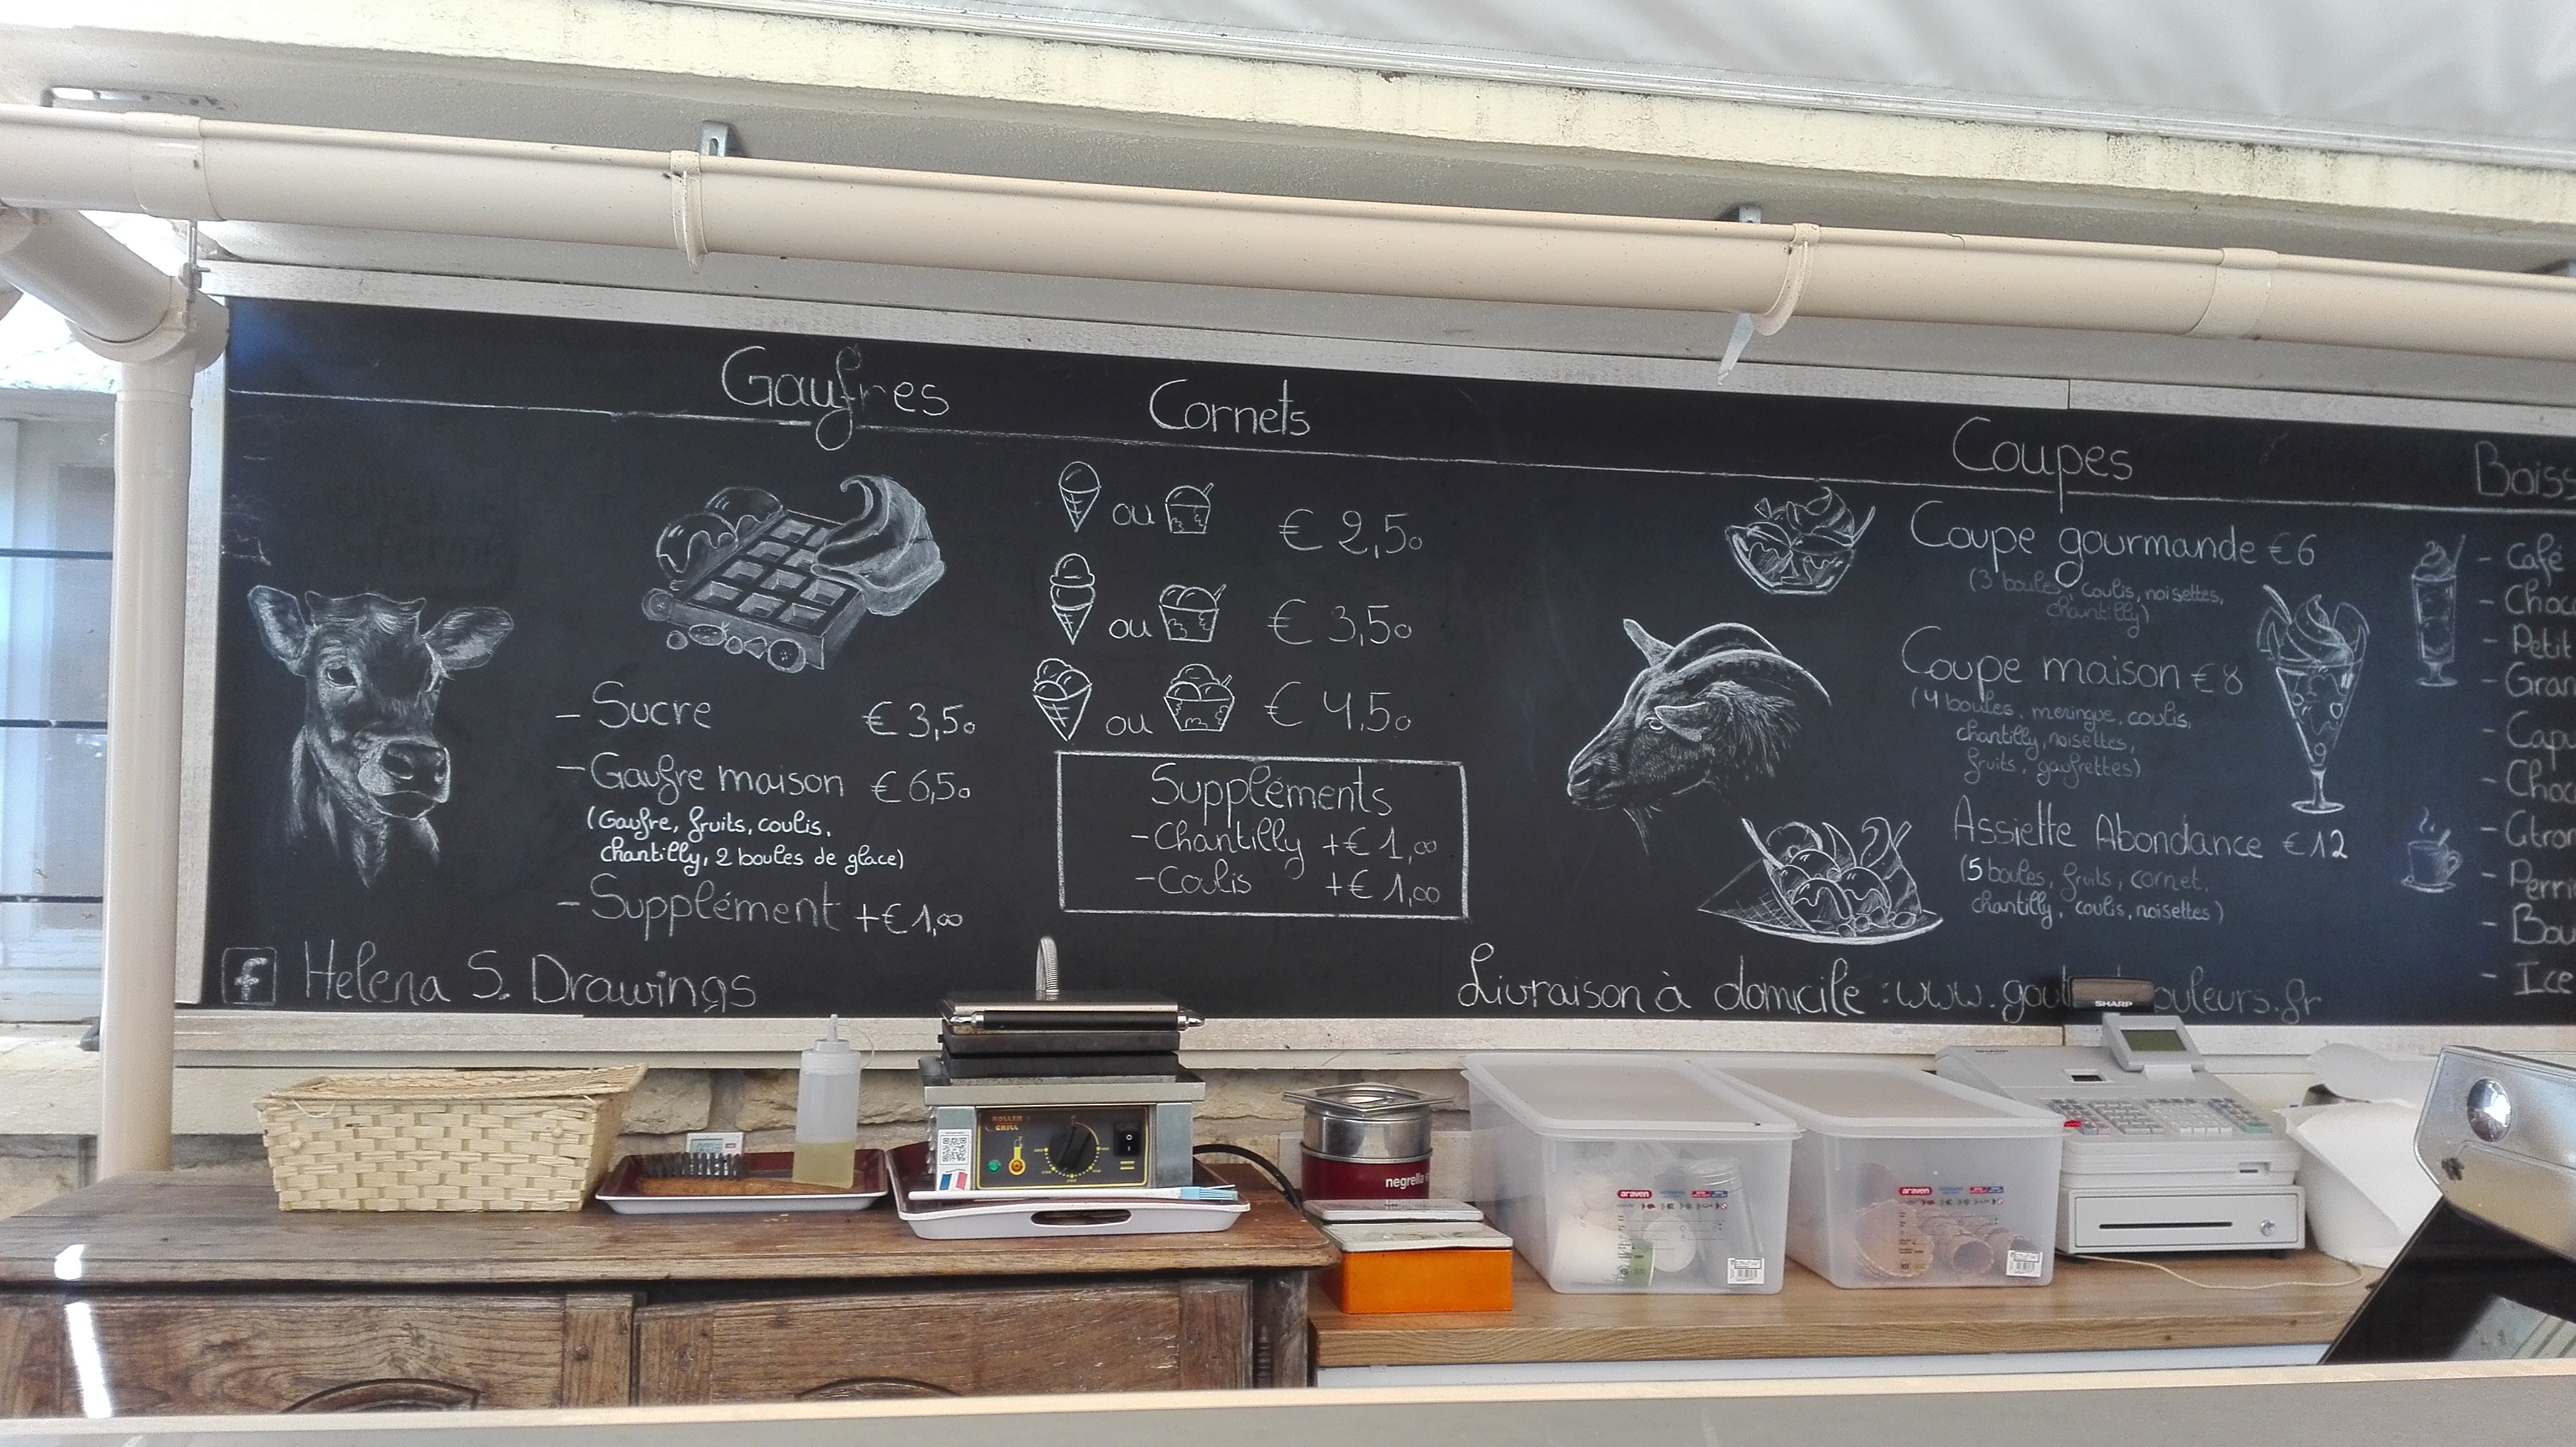 Gaufres
- Sucre € 3,50
- Gaufre maison € 6,50
(Gaufre, fruits, coulis,
chantilly, 2 boules de glace)
- Supplément +€ 1,00
Cornets
ou € 2,50
ou € 3,50
ou € 4,50
Suppléments
- Chantilly +€ 1,00
- Coulis +€ 1,00
Coupes
Coupe gourmande € 6
(3 boules, coulis, noisettes,
chantilly)
Coupe maison € 8
(4 boules, meringue, coulis,
chantilly, noisettes,
fruits, gaufrettes)
Assiette Abondance € 12
(5 boules, fruits, cornet,
chantilly, coulis, noisettes)
Boiss
- Café
- Choc
- Petit
- Gran
- Capu
- Choc
- Perri
- Bou
- Ice
f Helena S. Drawings
Livraison à domicile : www.gout ouleurs.fr
SHARP
ROLLER
GRILL
negrella
araven
araven